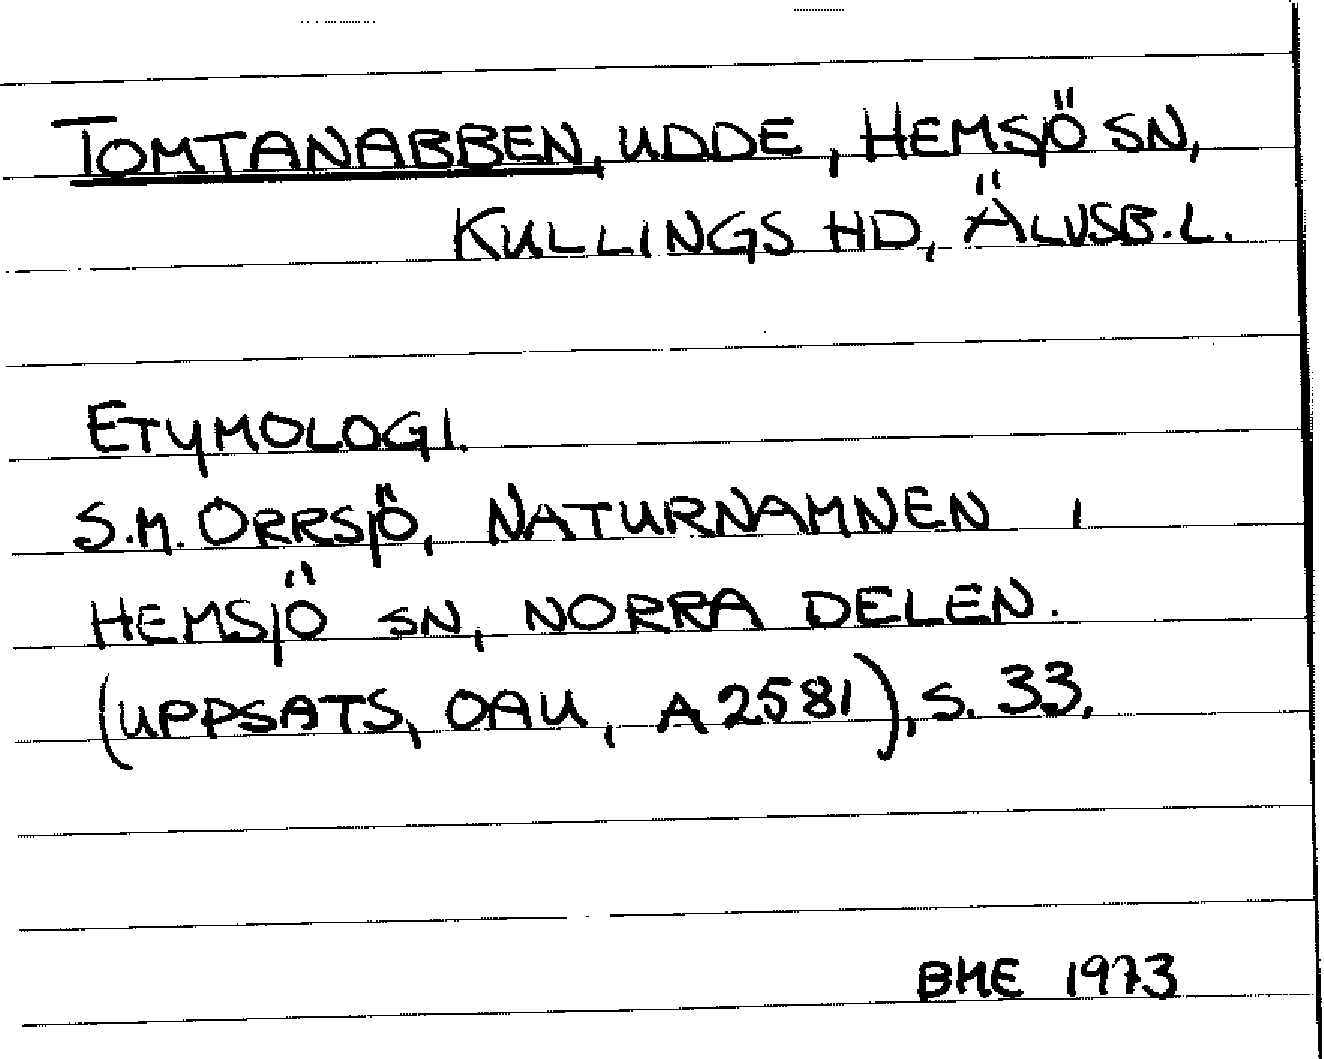 TOMTANABBEN, UDDE, HEMSJÖ SN,
KULLINGS HD, ÄLVSB.L.
ETYMOLOGI.
S.M. ORRSJÖ, NATURNAMNEN I
HEMSJÖ SN, NORRA DELEN.
(UPPSATS, OAU, A2581), S. 33.
BME 1973